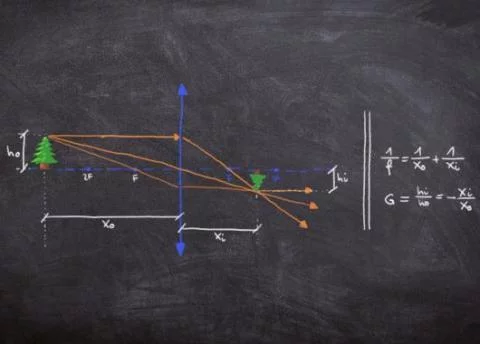 h₀
2F
F
hi
x₀
xi
1/f = 1/x₀ + 1/xi
G = hi/h₀ = -xi/x₀